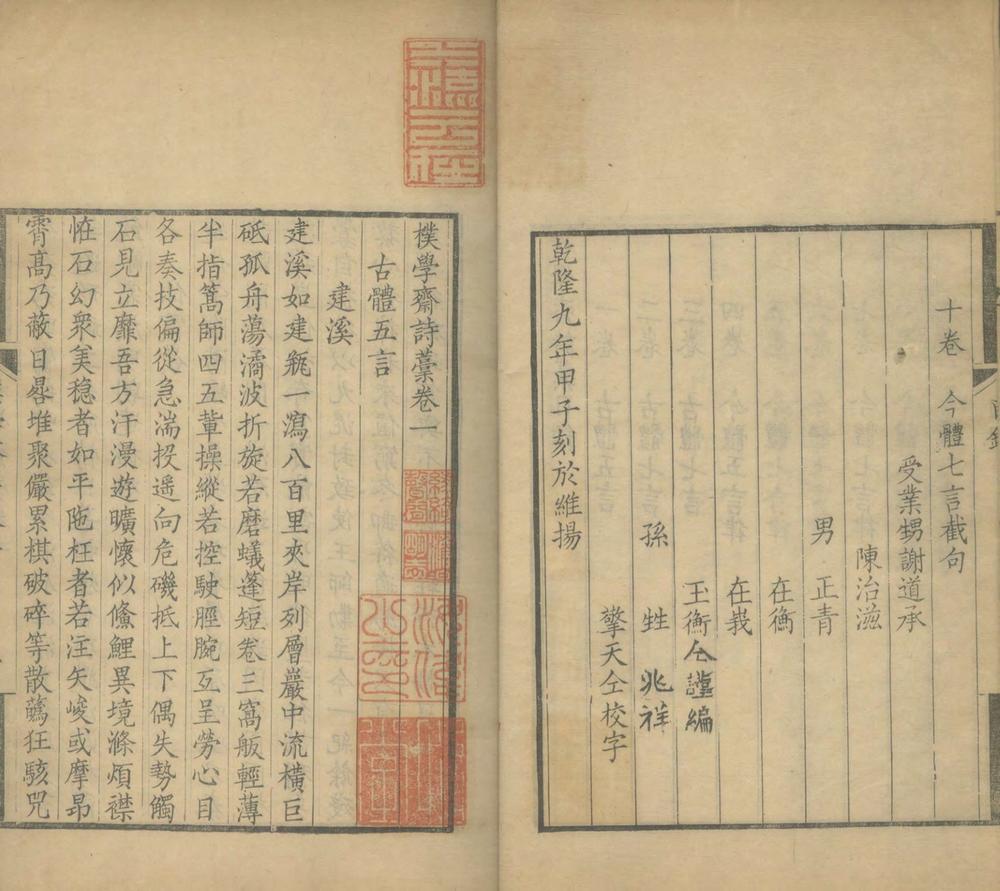 十卷　今體七言截句
受業甥謝道承
陳治滋
男　正青
在衡
在峩
玉衡仝謹編
孫　甡　兆祥
擎天仝校字
乾隆九年甲子刻於維揚
樸學齋詩藁卷一
古體五言
建溪
建溪如建瓶一瀉八百里夾岸列層巖中流橫巨
砥孤舟蕩潏波折旋若磨蟻蓬短卷三窩舨輕薄
半指篙師四五輩操縱若控駛脛腕互呈勞心目
各奏技偏從急湍投遥向危磯抵上下偶失勢觸
石見立靡吾方汗漫遊曠懷似儵鯉異境滌煩襟
恠石幻衆美穏者如平陁枉者若注矢峻或摩昻
霄髙乃蔽日晷堆聚儼累棋破碎等散蘤狂駭咒